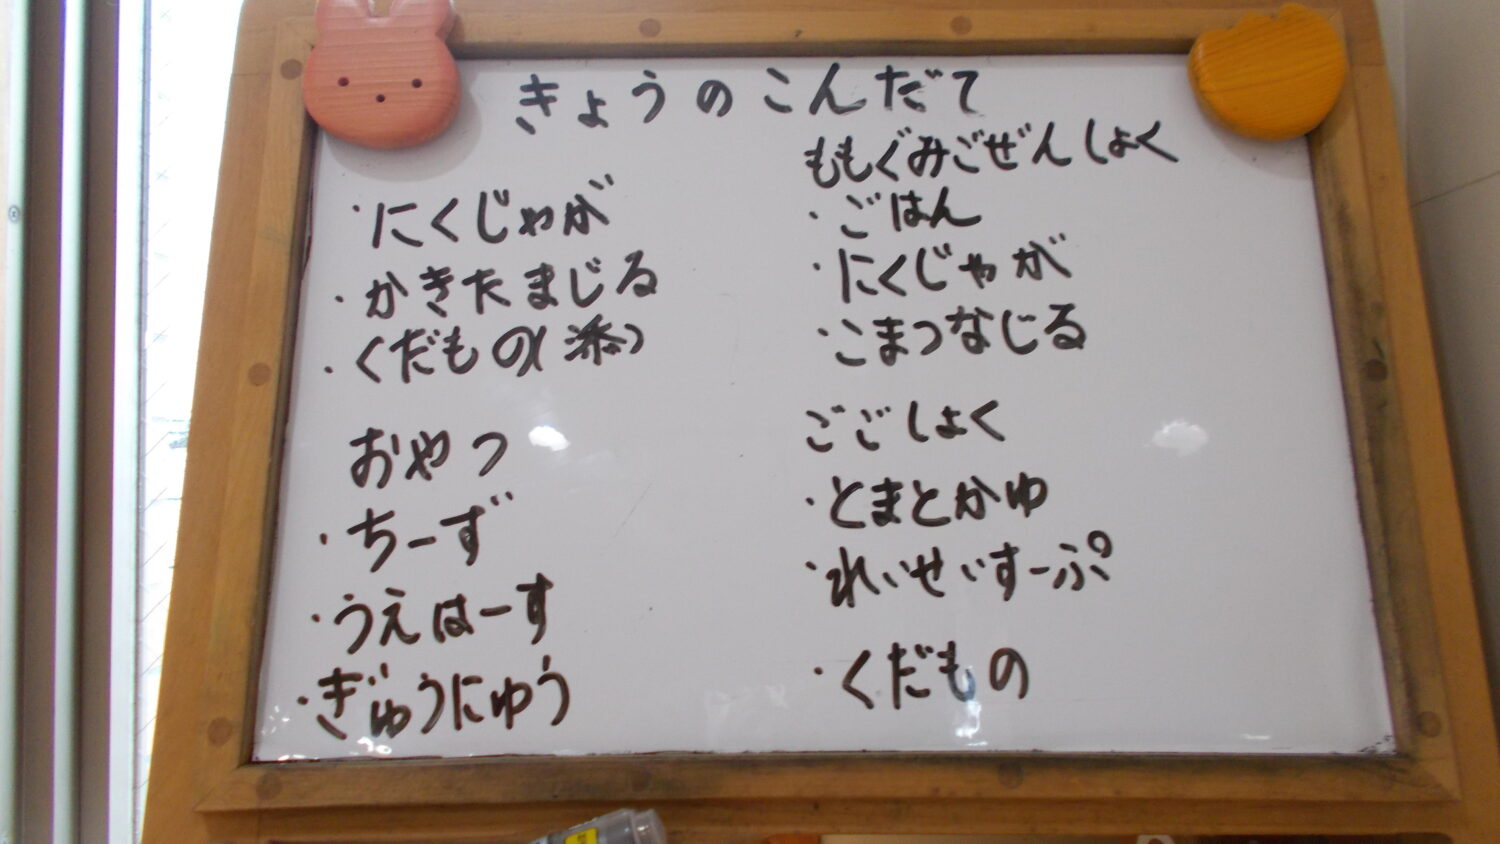 きょうのこんだて
・にくじゃが
・かきたまじる
・くだもの(添)
おやつ
・ちーず
・うえはーす
・ぎゅうにゅう
ももぐみごぜんしょく
・ごはん
・にくじゃが
・こまつなじる
ごごしょく
・とまとかゆ
・れいせいすーぷ
・くだもの